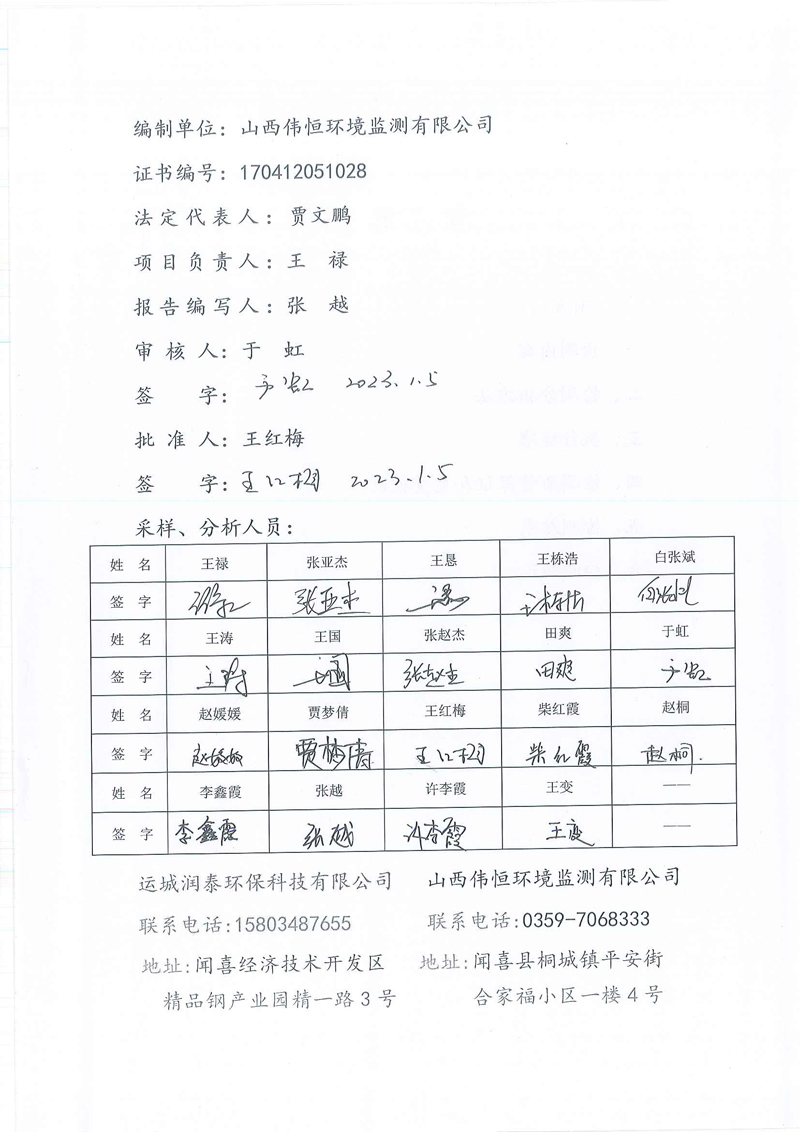 编制单位：山西伟恒环境监测有限公司
证书编号：170412051028
法定代表人：贾文鹏
项目负责人：王 禄
报告编写人：张 越
审 核 人：于 虹
签 字：于虹 2023.1.5
批 准 人：王红梅
签 字：王红梅 2023.1.5
采样、分析人员：
姓 名 王禄 张亚杰 王恳 王栋浩 白张斌
签 字 王禄 张亚杰 王恳 王栋浩 白张斌
姓 名 王涛 王国 张赵杰 田爽 于虹
签 字 王涛 王国 张赵杰 田爽 于虹
姓 名 赵媛媛 贾梦倩 王红梅 柴红霞 赵桐
签 字 赵媛媛 贾梦倩 王红梅 柴红霞 赵桐.
姓 名 李鑫霞 张越 许李霞 王变 ——
签 字 李鑫霞 张越 许李霞 王变 ——
运城润泰环保科技有限公司 山西伟恒环境监测有限公司
联系电话:15803487655 联系电话:0359-7068333
地址:闻喜经济技术开发区 地址:闻喜县桐城镇平安街
精品钢产业园精一路3号 合家福小区一楼4号